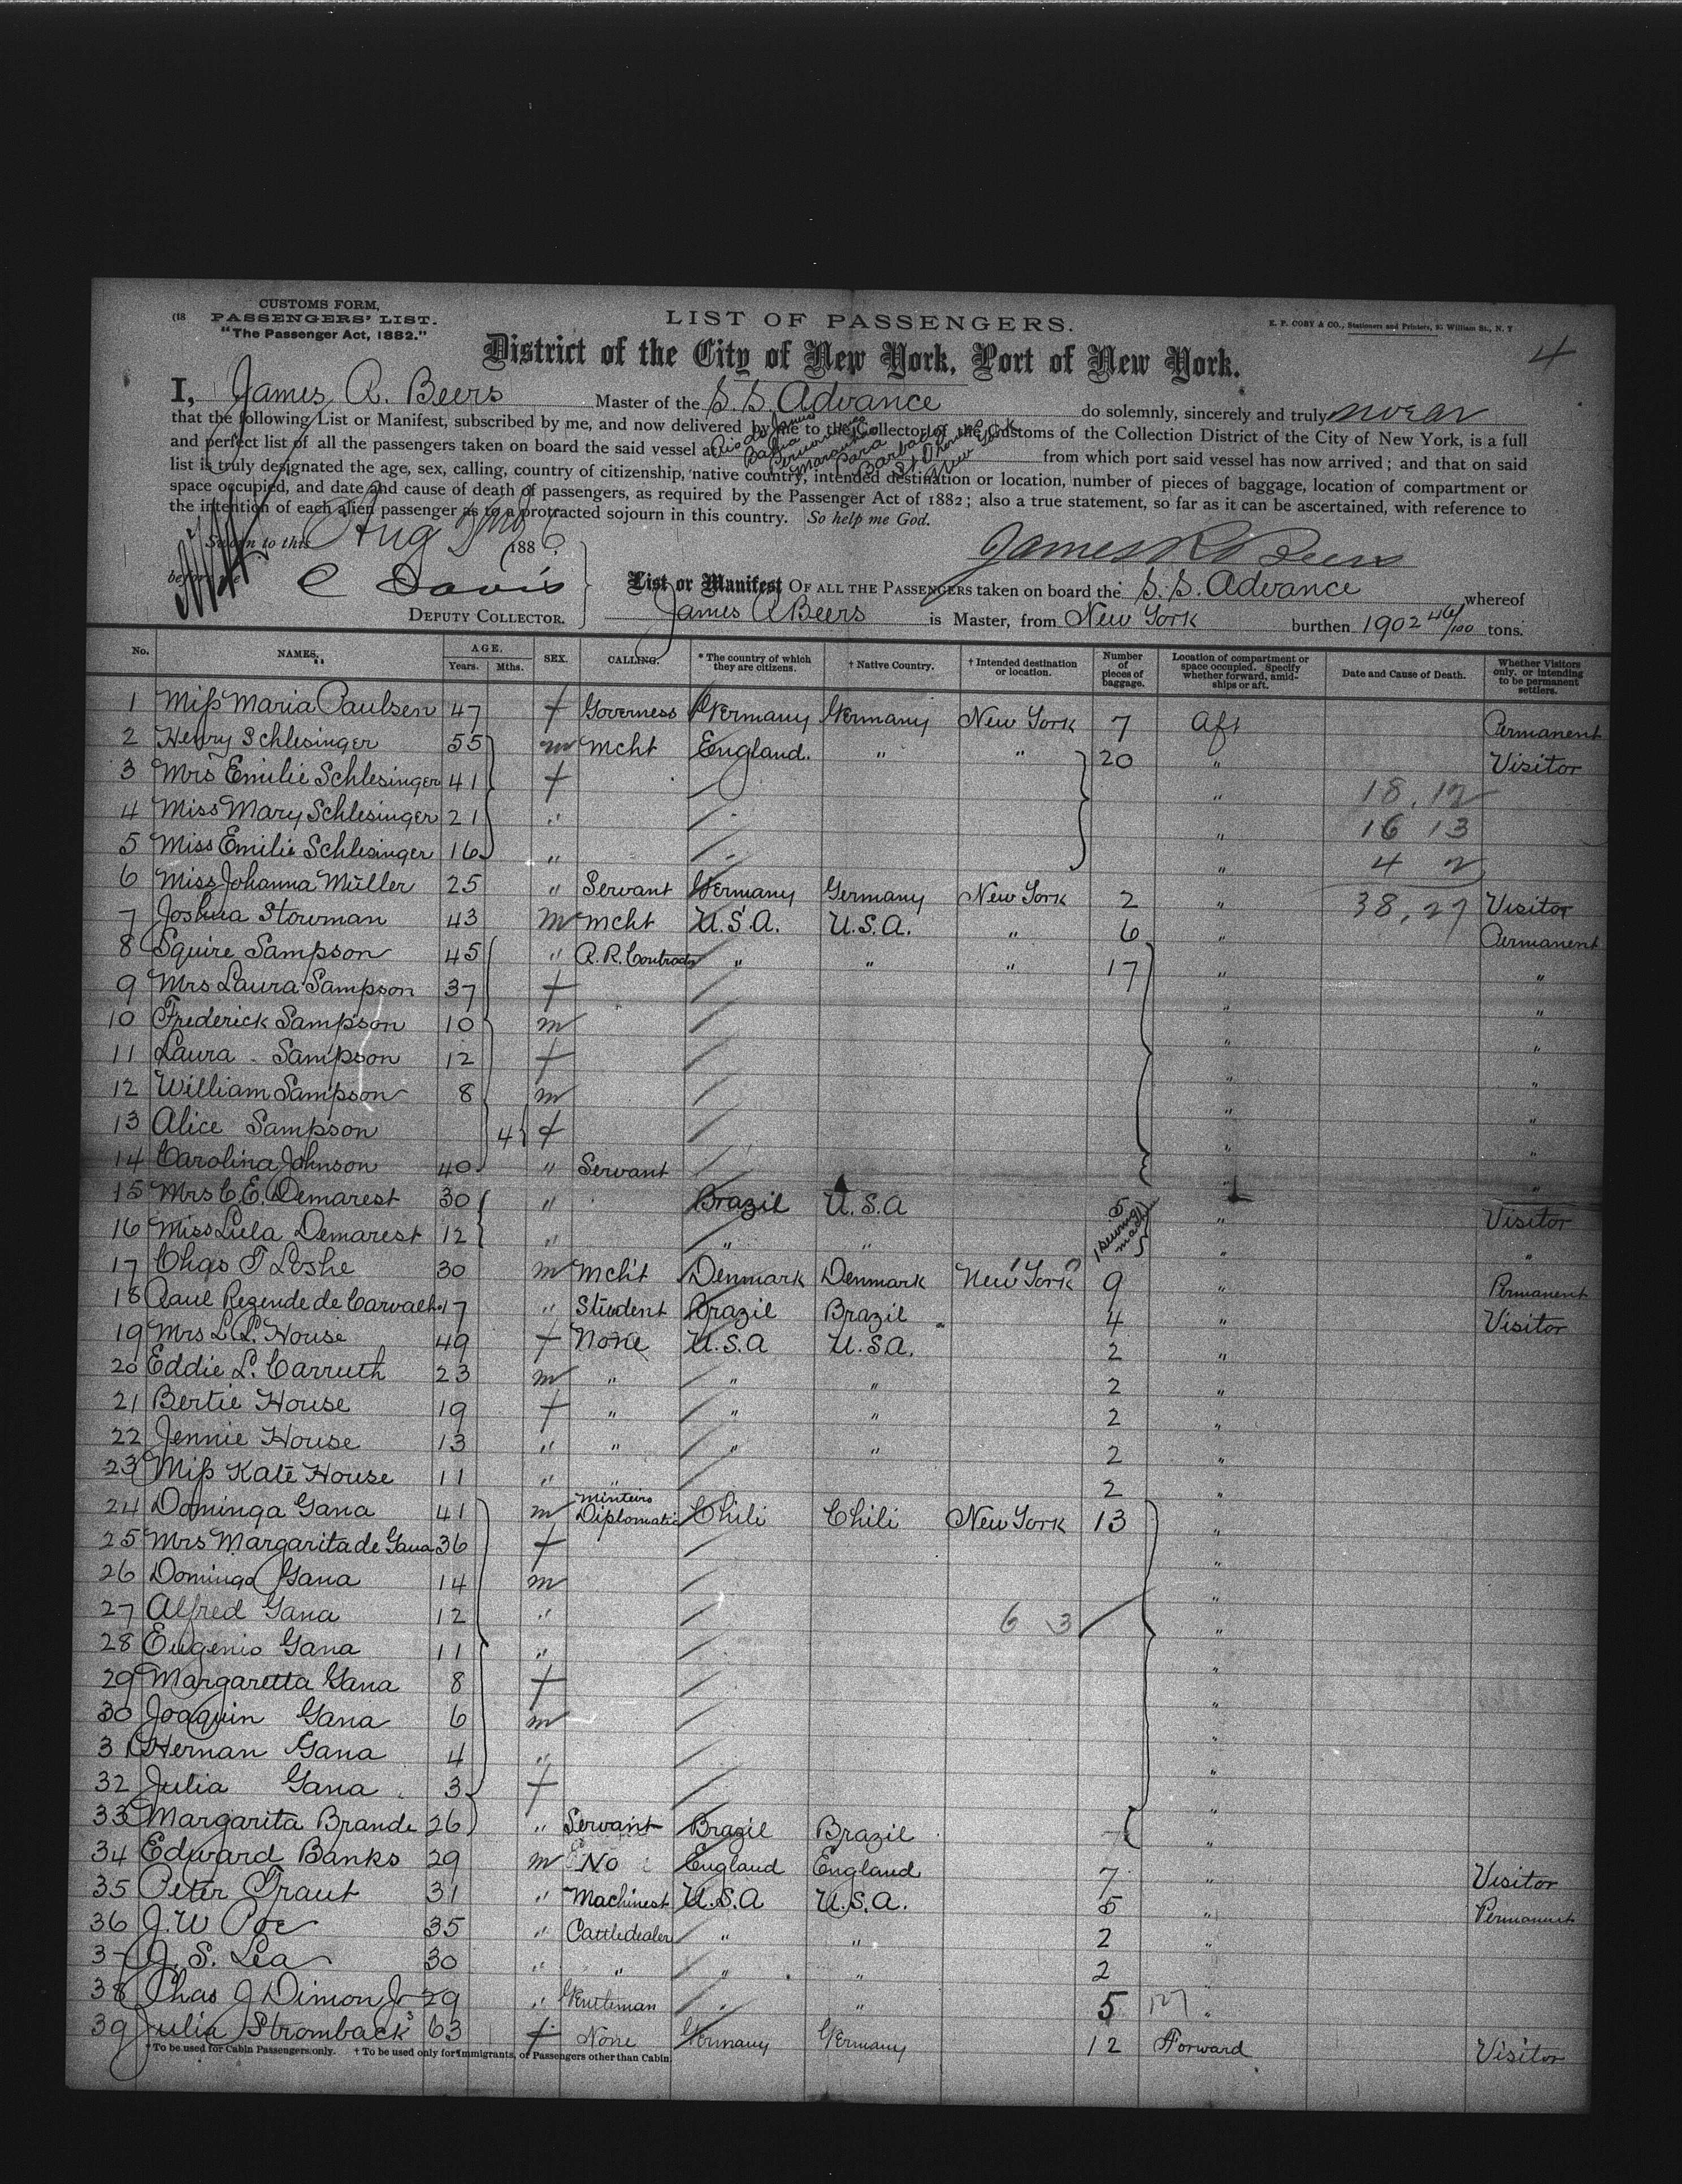 CUSTOMS FORM.
(18 PASSENGERS' LIST.
"The Passenger Act, 1882."
LIST OF PASSENGERS.
E. P. COBY & CO., Stationers and Printers, William St., N. Y
4
District of the City of New York, Port of New York.
I, James R. Beers Master of the S.S. Advance do solemnly, sincerely and truly swear
that the following List or Manifest, subscribed by me, and now delivered by me to the Collector of the Customs of the Collection District of the City of New York, is a full
and perfect list of all the passengers taken on board the said vessel at Rio de Janeiro Bahia Maranham Para Barbados St Thomas New York from which port said vessel has now arrived; and that on said
list is truly designated the age, sex, calling, country of citizenship, native country, intended destination or location, number of pieces of baggage, location of compartment or
space occupied, and date and cause of death of passengers, as required by the Passenger Act of 1882; also a true statement, so far as it can be ascertained, with reference to
the intention of each alien passenger as to a protracted sojourn in this country. So help me God.
Sworn to this Aug 188
James R Beers
before me C Davis
DEPUTY COLLECTOR.
List or Manifest OF ALL THE PASSENGERS taken on board the S.S. Advance whereof
James R Beers is Master, from New York burthen 1902 46/100 tons.
No. NAMES. AGE. Years. Mths. SEX. CALLING. * The country of which they are citizens. † Native Country. † Intended destination or location. Number of pieces of baggage. Location of compartment or space occupied. Specify whether forward, amidships or aft. Date and Cause of Death. Whether Visitors only, or intending to be permanent settlers.
1 Miss Maria Paulsen 47 f Governess Germany Germany New York 7 Aft Permanent
2 Henry Schlesinger 55 m mcht England. " " 20 " Visitor
3 Mrs Emilie Schlesinger 41 f " 18. 12
4 Miss Mary Schlesinger 21 " " 16 13
5 Miss Emilie Schlesinger 16 " " 4 2
6 Miss Johanna Müller 25 " Servant Germany Germany New York 2 " 38. 27 Visitor
7 Joshua Stowman 43 m mcht U.S.A. U.S.A. " 6 " Permanent
8 Squire Sampson 45 " R.R. Contractr " " " 17 " "
9 Mrs Laura Sampson 37 f " "
10 Frederick Sampson 10 m " "
11 Laura Sampson 12 f " "
12 William Sampson 8 m " "
13 Alice Sampson 4 f " "
14 Carolina Johnson 40 " Servant " "
15 Mrs C. E. Demarest 30 " Brazil U.S.A 5 " Visitor
16 Miss Lula Demarest 12 " " " 1 sewing mach " "
17 Chas T Loshe 30 m mcht Denmark Denmark New York 9 " Permanent
18 Raul Rezende de Carvalho 17 " Student Brazil Brazil 4 " Visitor
19 Mrs L L. House 49 f None U.S.A U.S.A. 2 "
20 Eddie L. Carruth 23 m " " " 2 "
21 Bertie House 19 f " " " 2 "
22 Jennie House 13 " " " " 2 "
23 Miss Kate House 11 " " 2 "
24 Dominga Gana 41 m Diplomatic Chili Chili New York 13 "
25 Mrs Margarita de Gana 36 f "
26 Domingo Gana 14 m "
27 Alfred Gana 12 " 6 3 "
28 Eugenio Gana 11 " "
29 Margaretta Gana 8 f "
30 Joaquin Gana 6 m "
31 Hernan Gana 4 " "
32 Julia Gana 3 f "
33 Margarita Brande 26 " Servant Brazil Brazil "
34 Edward Banks 29 m No England England 7 " Visitor
35 Peter Traut 31 " Machinest U.S.A U.S.A. 5 " Permanent
36 J. W Poe 35 " Cattledealer " " 2 "
37 J. S. Lea 30 " " " " 2 "
38 Chas J Dimon Jr 29 " Gentleman " " 5 127 "
39 Julia Stromback 63 f None Germany Germany 12 Forward Visitor
*To be used for Cabin Passengers only. † To be used only for Immigrants, or Passengers other than Cabin.